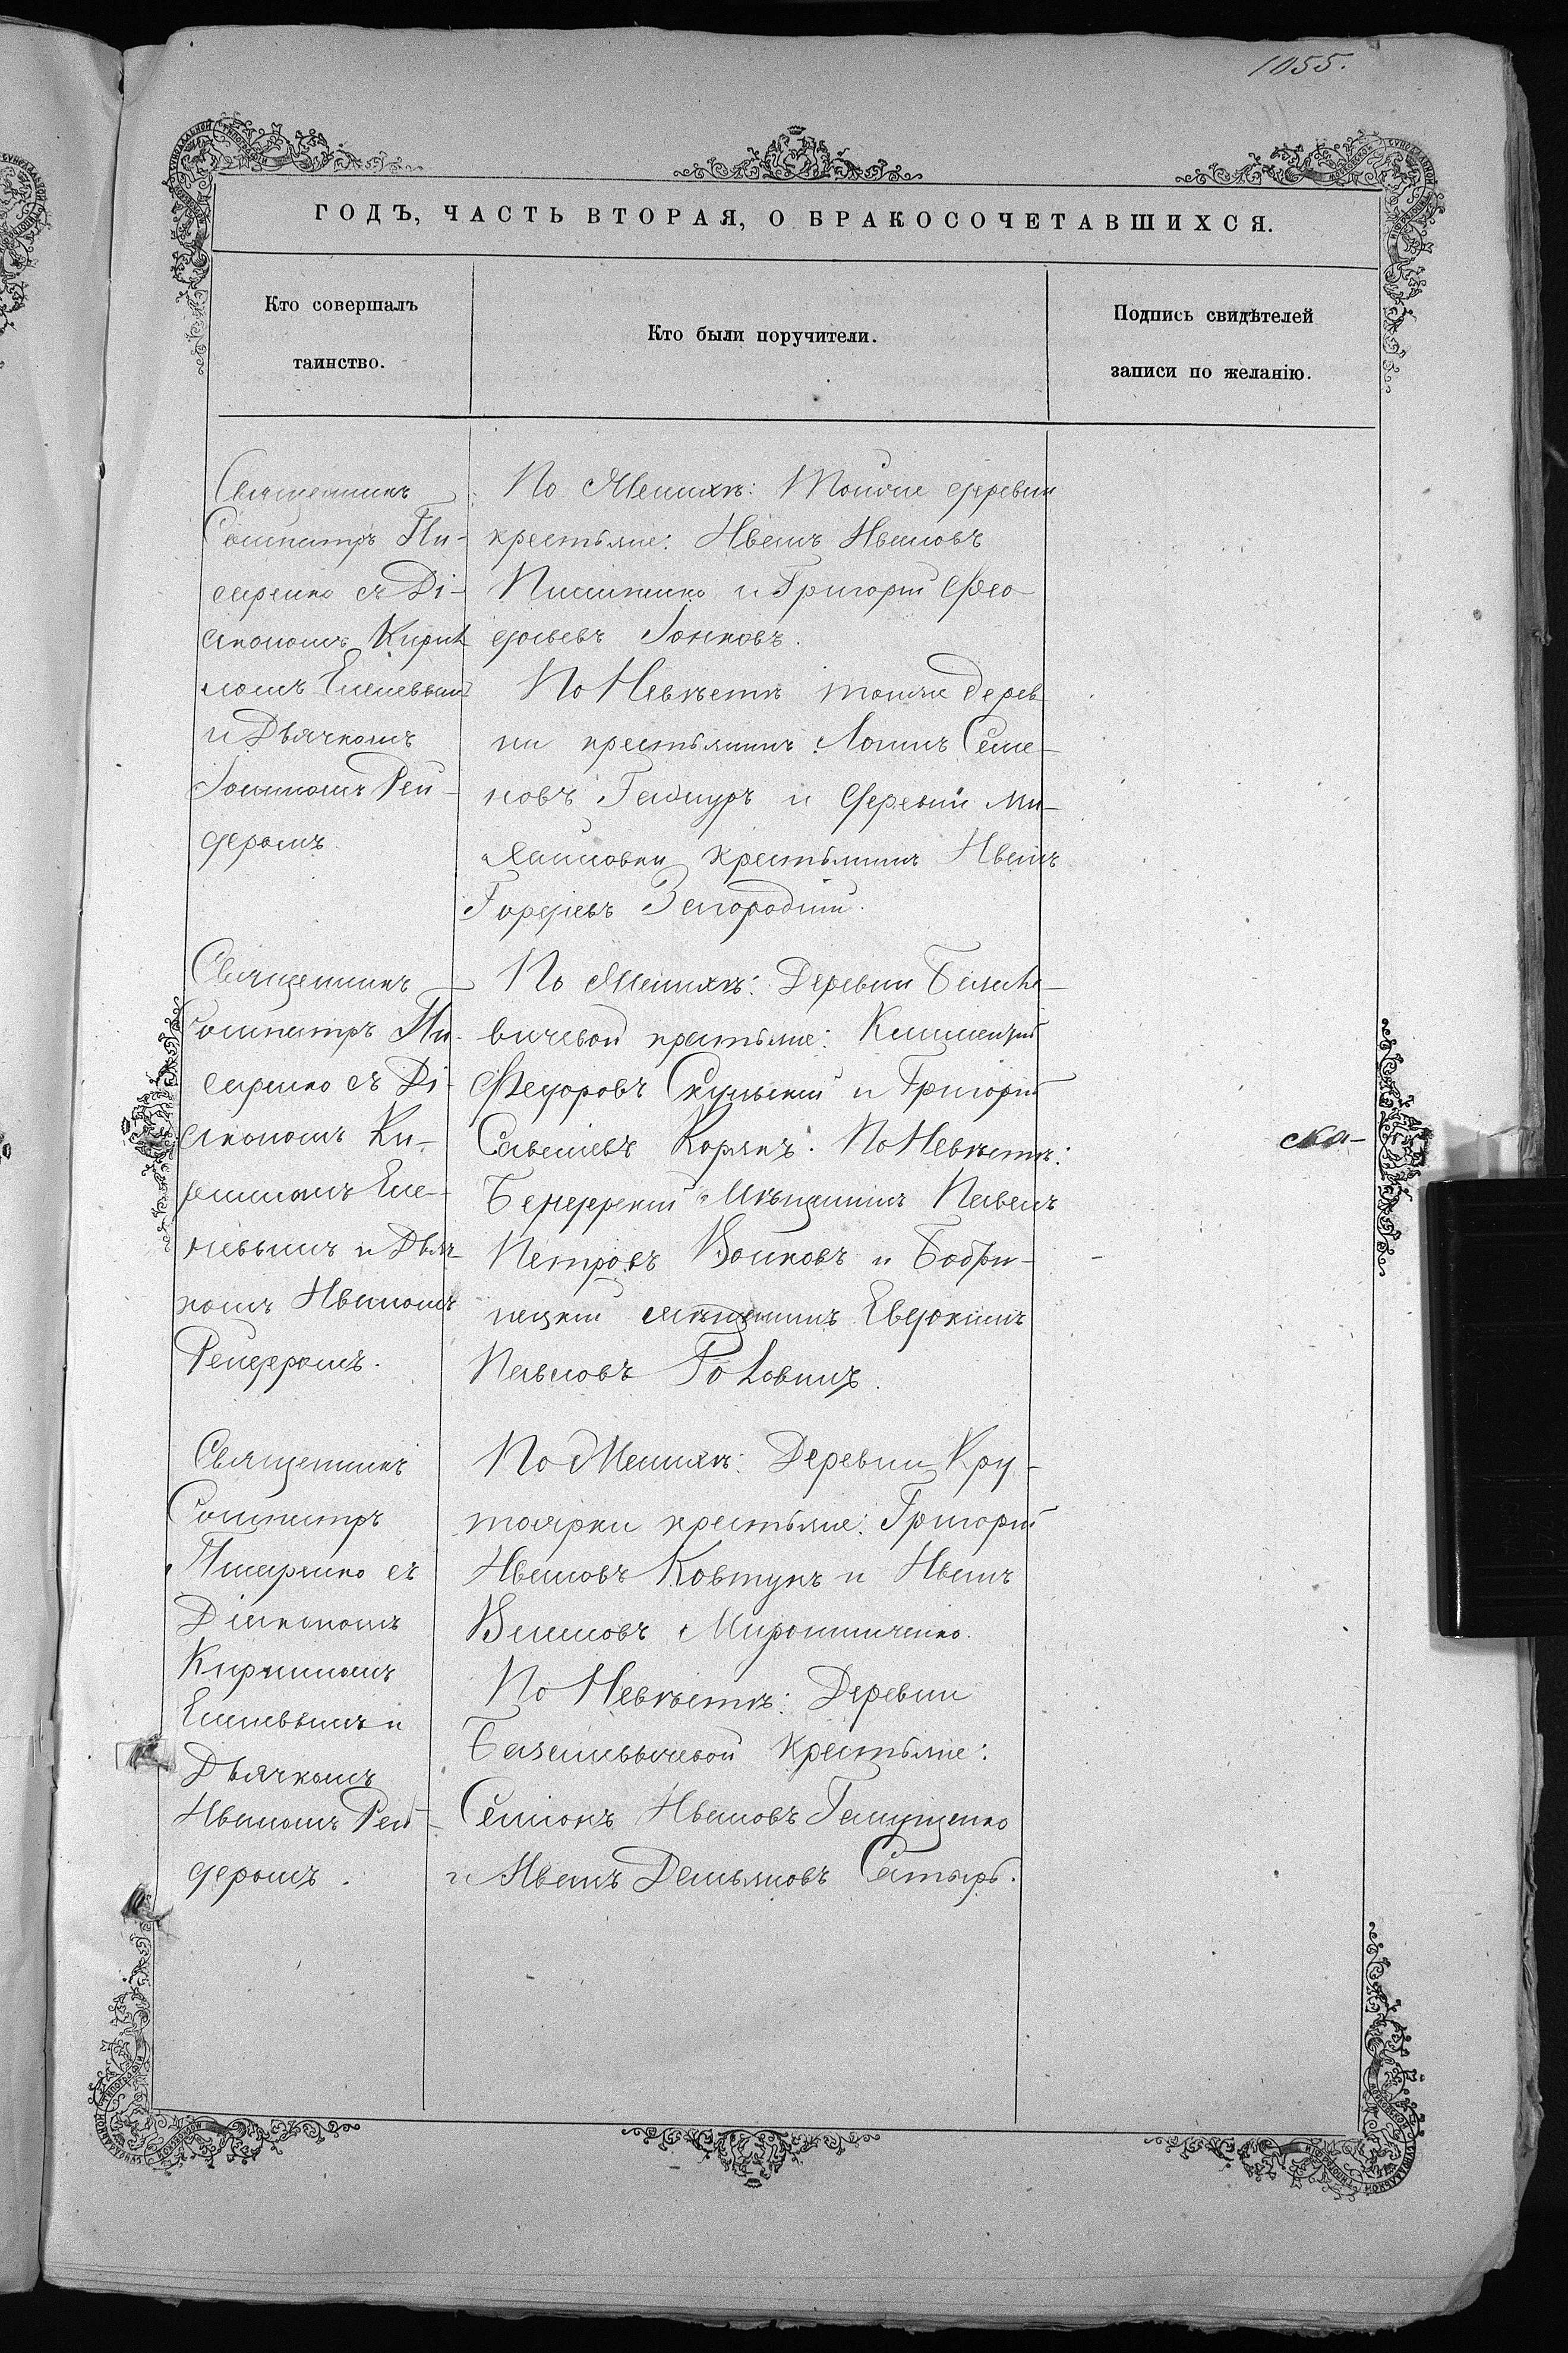 1055.
ГОДЪ, ЧАСТЬ ВТОРАЯ, О БРАКОСОЧЕТАВШИХСЯ.
Кто совершалъ
таинство.
Кто были поручители.
Подпись свидѣтелей
записи по желанію.
Священникъ
Сосипатръ Пи-
саренко съ Ді-
акономъ Кирил
ломъ
и Дьячкомъ
Іоанномъ Рей-
деромъ.
По Женихѣ: Тойже деревни
крестьяне: Иванъ Ивановъ
и Григорій Фео
доровъ
По Невѣстѣ тойже дерев
ни крестьянинъ Логинъ Семе-
новъ Гайдуръ и деревни Ми-
хайловки крестьянинъ Иванъ
Гордѣевъ Загородній.
Священникъ
Сосипатръ Пи-
саренко съ Ді-
акономъ Ки-
рилломъ Еме-
и Дьяч-
комъ Иваномъ
Рейдеромъ.
По Женихѣ: Деревни Базиле-
вичевой крестьяне: Климентій
Федоровъ Скульскій и Григорій
Савельевъ Корякъ. По Невѣстѣ:
Бендерскій Мѣщанинъ Павелъ
Петровъ Волковъ и Бобри-
нецкій мѣщанинъ Евдокимъ
Павловъ Головинъ.
ска-
Священникъ
Сосипатръ
Писаренко съ
Діакономъ
Кирилломъ
и
Дьячкомъ
Иваномъ Рей-
деромъ.
По Женихѣ: Деревни Кру-
тоярки крестьяне: Григорій
Ивановъ Ковтунъ и Иванъ
Мирошниченко.
По Невѣстѣ: Деревни
Базилевичевой крестьяне:
Семіонъ Ивановъ Галущенко
и Иванъ Демьяновъ Сатыръ.